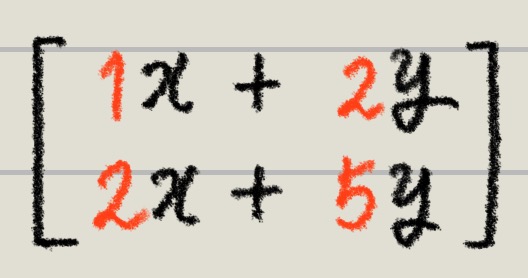 [ 1x + 2y ]
[ 2x + 5y ]